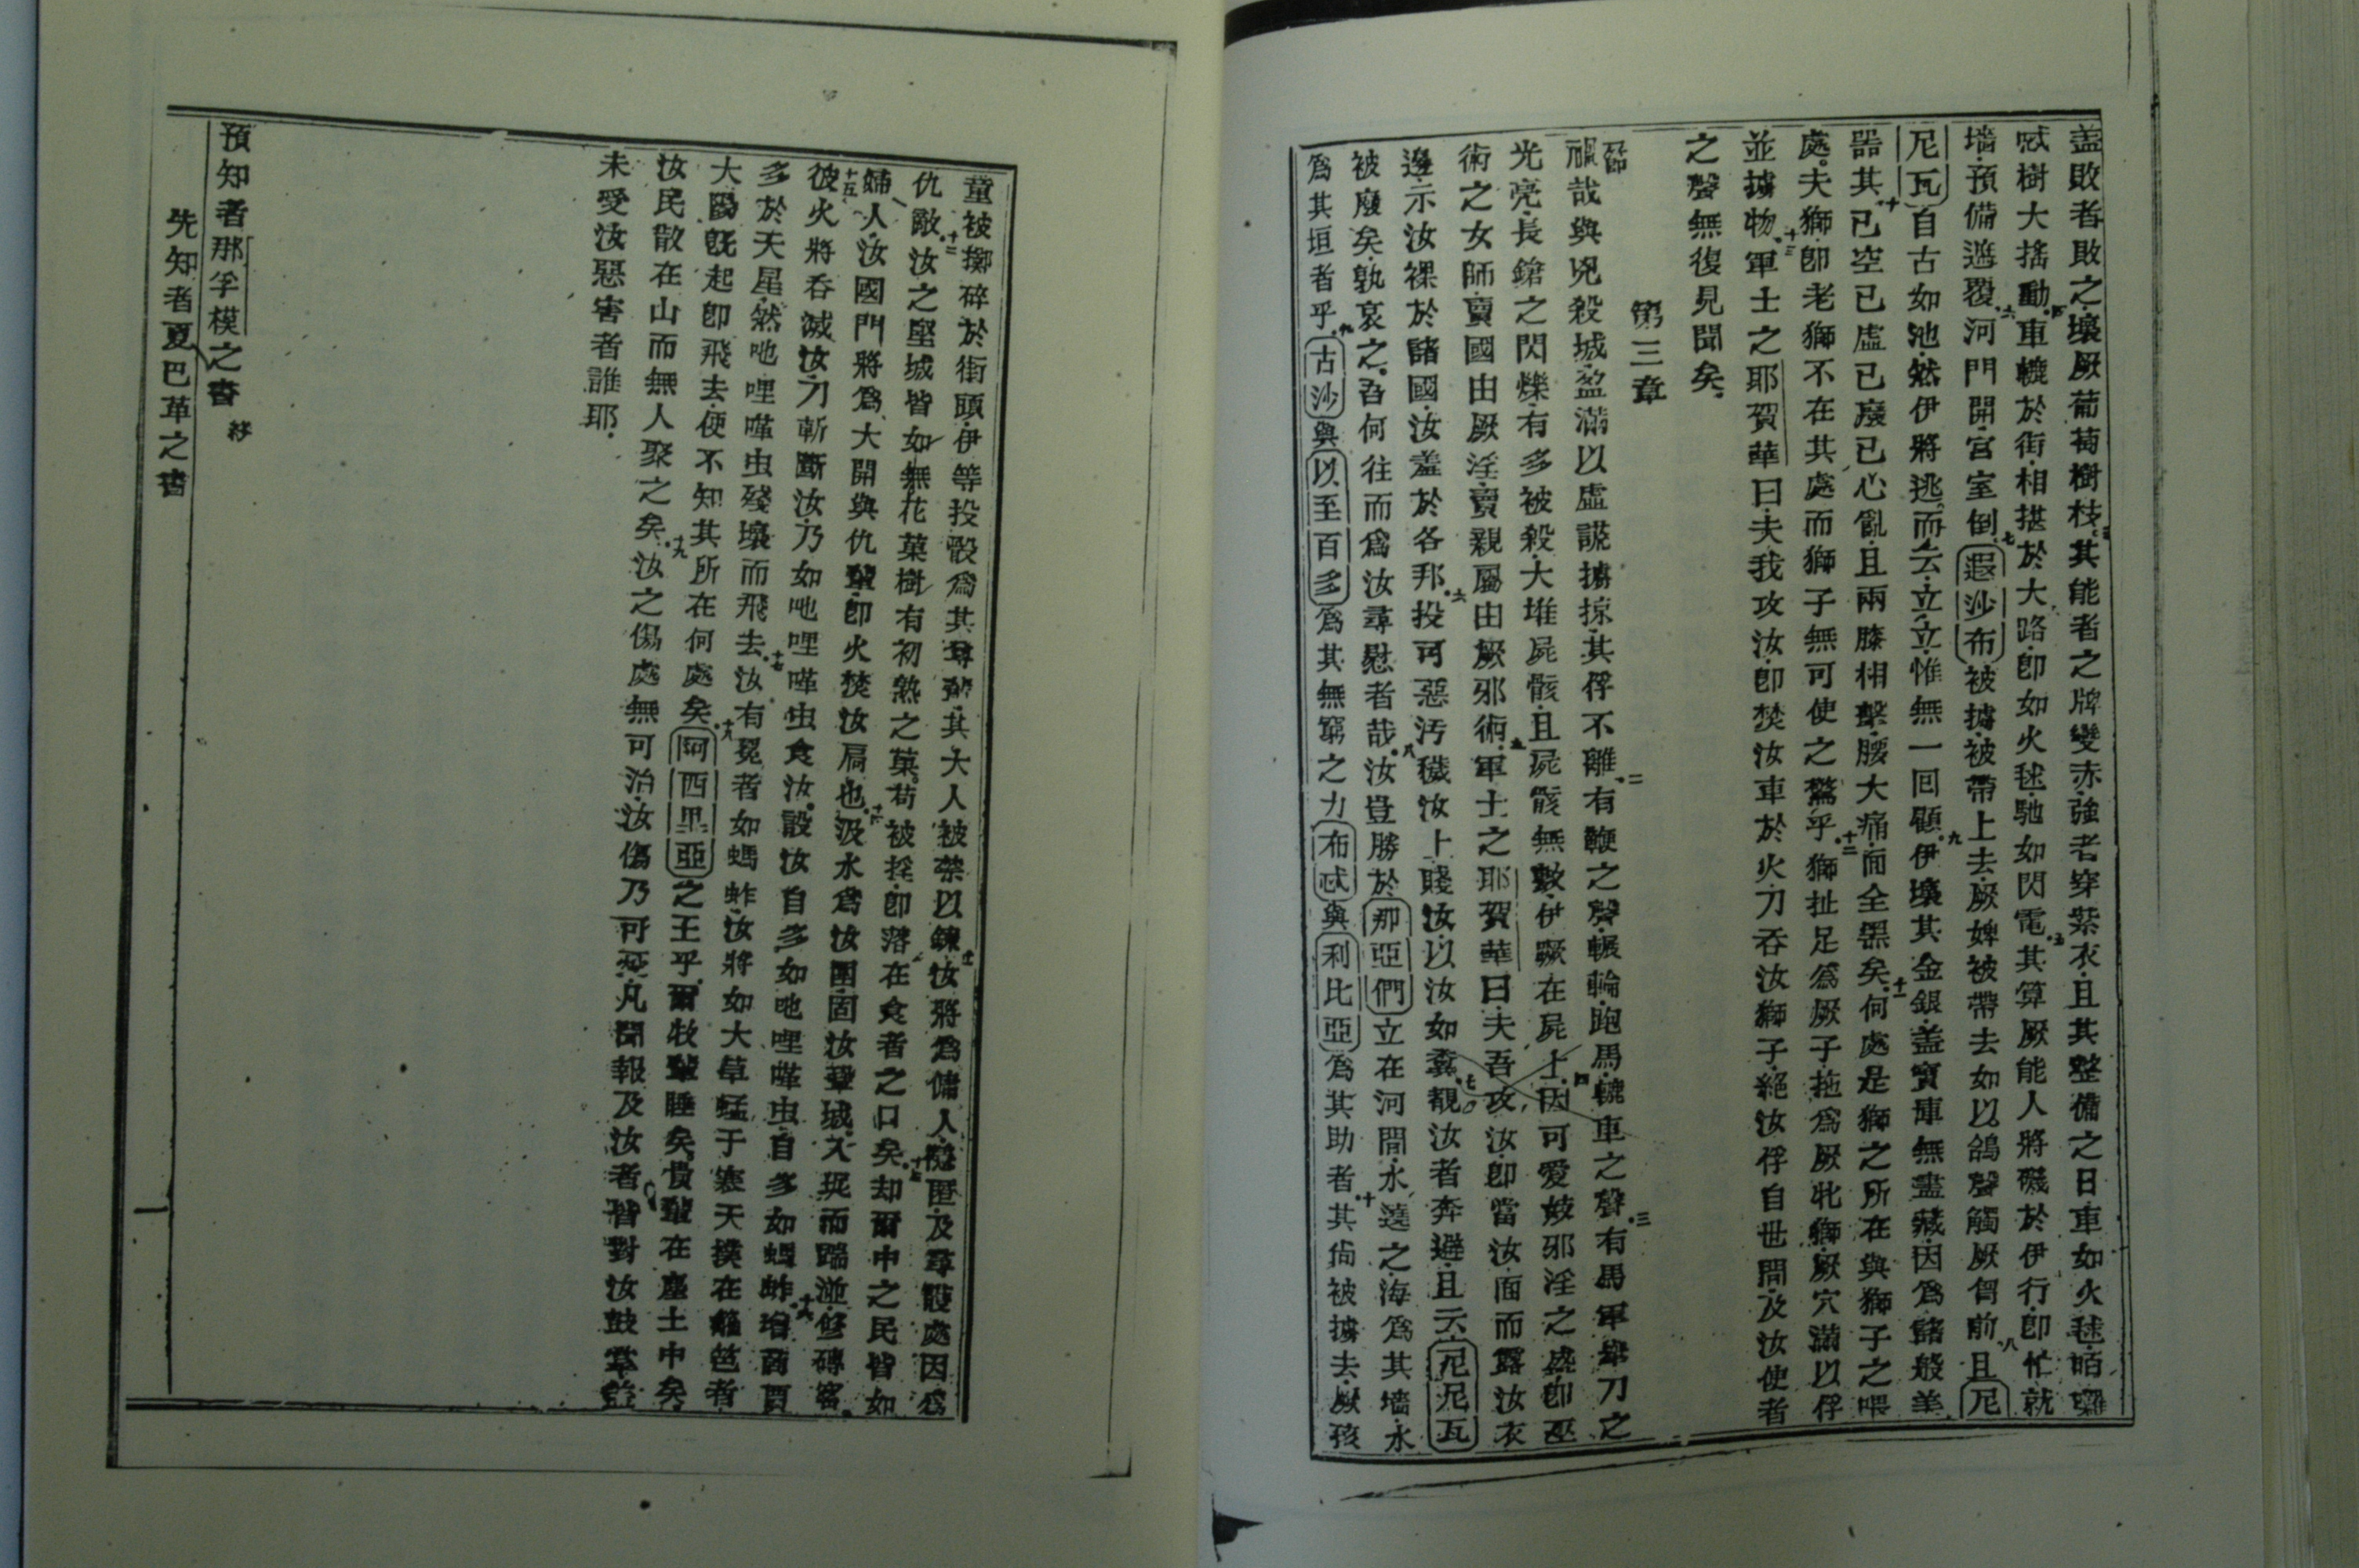 盖敗者敗之壞厥葡萄樹枝三其能者之牌變赤強者穿紫衣且其整備之日車如火毬栢
樹大搖動四車轆於街相撞於大路即如火毬馳如閃電五其算厥能人將磯於伊行即忙就
墻預備遮覆六河門開宮室倒七遐沙布被擄被帶上去厥婢被帶去如以鴿聲觸厥胷前八且尼
尼瓦自古如池然伊將逃而云立立惟無一回顧九伊壞其金銀盖寶庫無盡藏因為諸般美
器其十已空已虛已廢已心亂且兩膝相擊腰大痛面全黑矣十一何處是獅之所在與獅子之喂
處夫獅即老獅不在其處而獅子無可使之驚乎十二獅扯足為厥子拖為厥牝獅厥穴滿以俘
並擄物十三軍士之耶賀華曰夫我攻汝即焚汝車於火刀吞汝獅子絕汝俘自世間及汝使者
之聲無復見聞矣
第三章
一節禍哉與兇殺城盈滿以虛謊擄掠其俘不離二有鞭之聲輾輪跑馬轆車之聲三有馬軍舉刀之
光亮長鎗之閃爍有多被殺大堆屍骸且屍骸無數伊蹶在屍上四因可愛妓邪淫之盛即巫
術之女師賣國由厥淫賣親屬由厥邪術五軍士之耶賀華曰夫吾攻汝即當汝面而露汝衣
邊示汝裸於諸國汝羞於各邦六投可惡汚穢汝上賤汝以汝如糞七覩汝者奔避且云尼尼瓦
被廢矣孰哀之吾何往而為汝尋慰者哉八汝豈勝於那亞們立在河間水遶之海為其墻水
為其垣者乎九古沙與以至百多為其無窮之力布忒與利比亞為其助者十其尙被擄去厥孩
童被擲碎於街頭伊等投骰為其尊輩其大人被禁以鍊十一汝將為傭人隱匿及尋護處因為
仇敵十二汝之堅城皆如無花菓樹有初熟之菓苟被搖即落在食者之口矣十三却爾中之民皆如
婦人汝國門將為大開與仇輩即火焚汝扃也十四汲水為汝圍固汝輩城入坭而踹並修磚窰
十五彼火將吞滅汝刀斬斷汝乃如吔哩嗼虫食汝設汝自多如吔哩嗼虫自多如螞蚱十六增商賈
多於天星然吔哩嗼虫殘壞而飛去十七汝有冕者如螞蚱汝將如大草蜢于寒天撲在籬笆者
大陽旣起即飛去便不知其所在何處矣十八阿西里亞之王乎爾牧輩睡矣貴輩在塵土中矣
汝民散在山而無人聚之矣十九汝之傷處無可治汝傷乃可死凡聞報及汝者皆對汝鼓掌盖
未受汝惡害者誰耶
預知者那孚模之書 終
先知者夏巴革之書 一